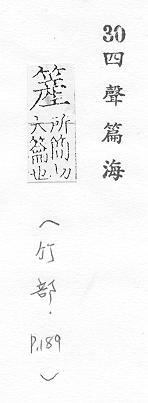 30四聲篇海
簅
所簡切
大籥也
（竹部．P.189）